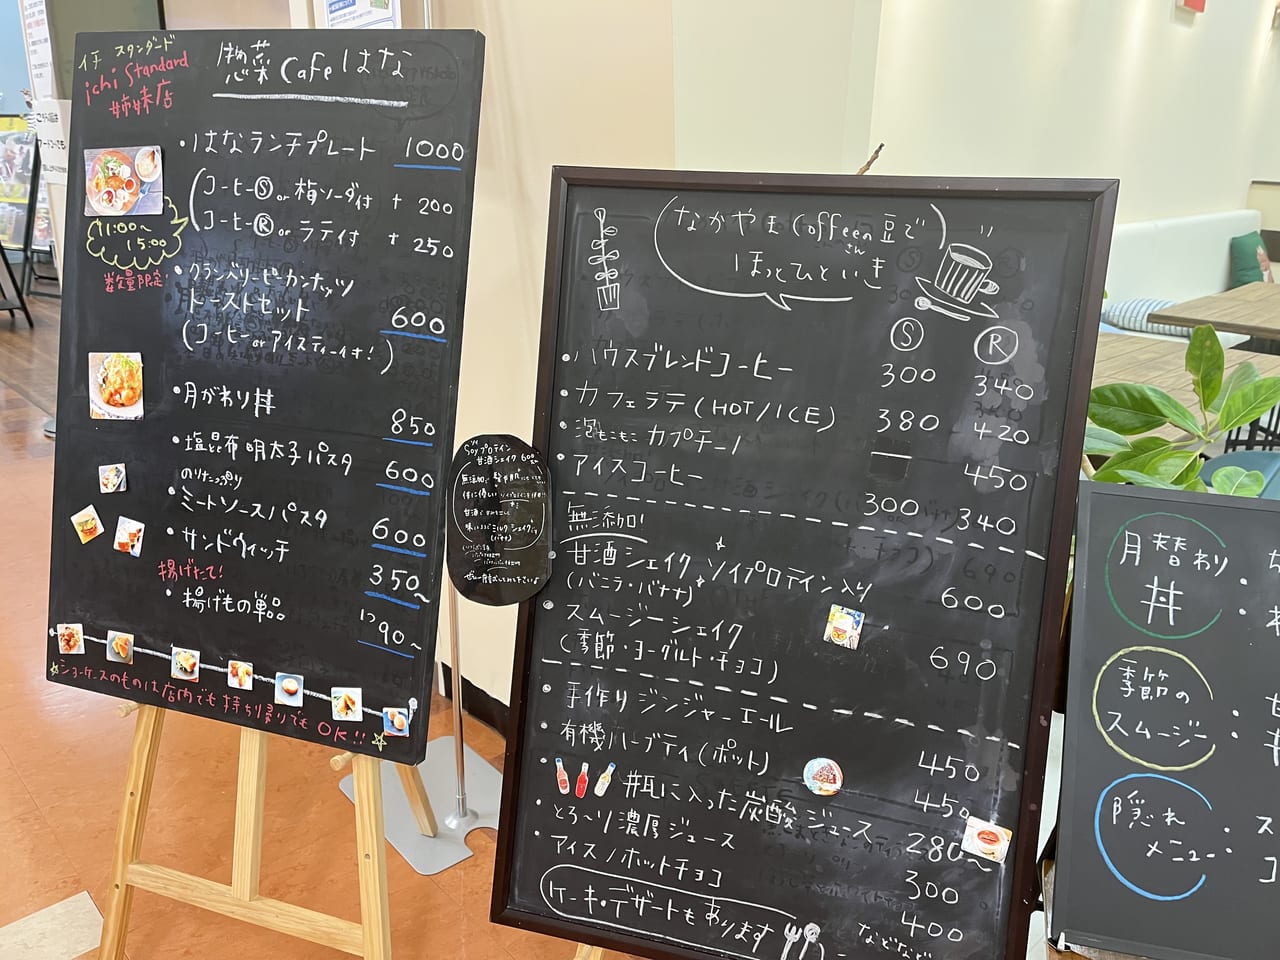 イチ スタンダード
ichi Standard
姉妹店
惣菜Cafeはな
・はなランチプレート 1000
(コーヒーⓈor梅ソーダ付 + 200
コーヒーⓇorラティ付 + 250
11:00～
15:00
数量限定
・クランベリーピーカンナッツ
トーストセット 600
(コーヒーorアイスティー付!)
・月がわり丼 850
・塩昆布明太子パスタ 600
のりたっぷり
・ミートソースパスタ 600
・サンドウィッチ 350~
揚げたて!
・揚げもの単品 1コ90~
☆ショーケースのものは店内でも持ち帰りでもOK!!☆
Soyプロテイン
甘酒シェイク 600
なかやまCoffeeさんの豆で
ほっとひといき
Ⓢ Ⓡ
・ハウスブレンドコーヒー 300 340
・カフェラテ(HOT/ICE) 380 420
・泡もこもこカプチーノ — 450
・アイスコーヒー 300 340
無添加!
甘酒シェイク ソイプロテイン入り 600
(バニラ・バナナ)
・スムージーシェイク 690
(季節・ヨーグルト・チョコ)
・手作りジンジャーエール 450
・有機ハーブティ(ポット) 450
#瓶に入った炭酸ジュース 280~
・とろ～り濃厚ジュース 300
・アイス/ホットチョコ 400
ケーキ・デザートもあります
などなど
月替わり
丼
季節の
スムージー
隠れ
メニュー